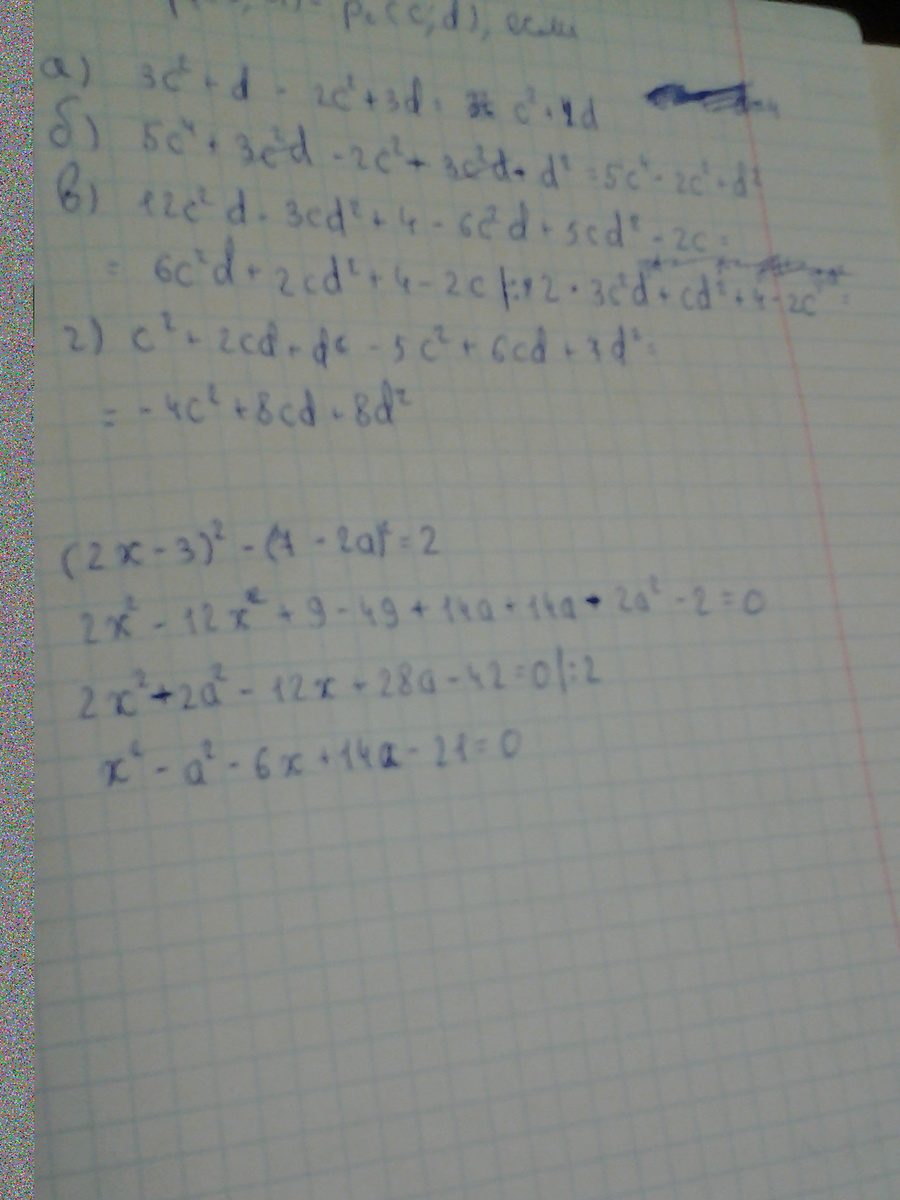 p₂(c;d), если
а) 3c² + d - 2c² + 3d = c² + 4d
б) 5c⁴ + 3c²d - 2c² + 3c²d + d² = 5c⁴ - 2c² + d²
в) 12c²d - 3cd² + 4 - 6c²d + 5cd² - 2c =
= 6c²d + 2cd² + 4 - 2c |:2 = 3c²d + cd² + 4 - 2c =
г) c² + 2cd + d² - 5c² + 6cd + 7d² =
= -4c² + 8cd + 8d²
(2x - 3)² - (7 - 2a)² = 2
2x² - 12x² + 9 - 49 + 14a + 14a - 2a² - 2 = 0
2x² - 2a² - 12x + 28a - 42 = 0 |:2
x² - a² - 6x + 14a - 21 = 0